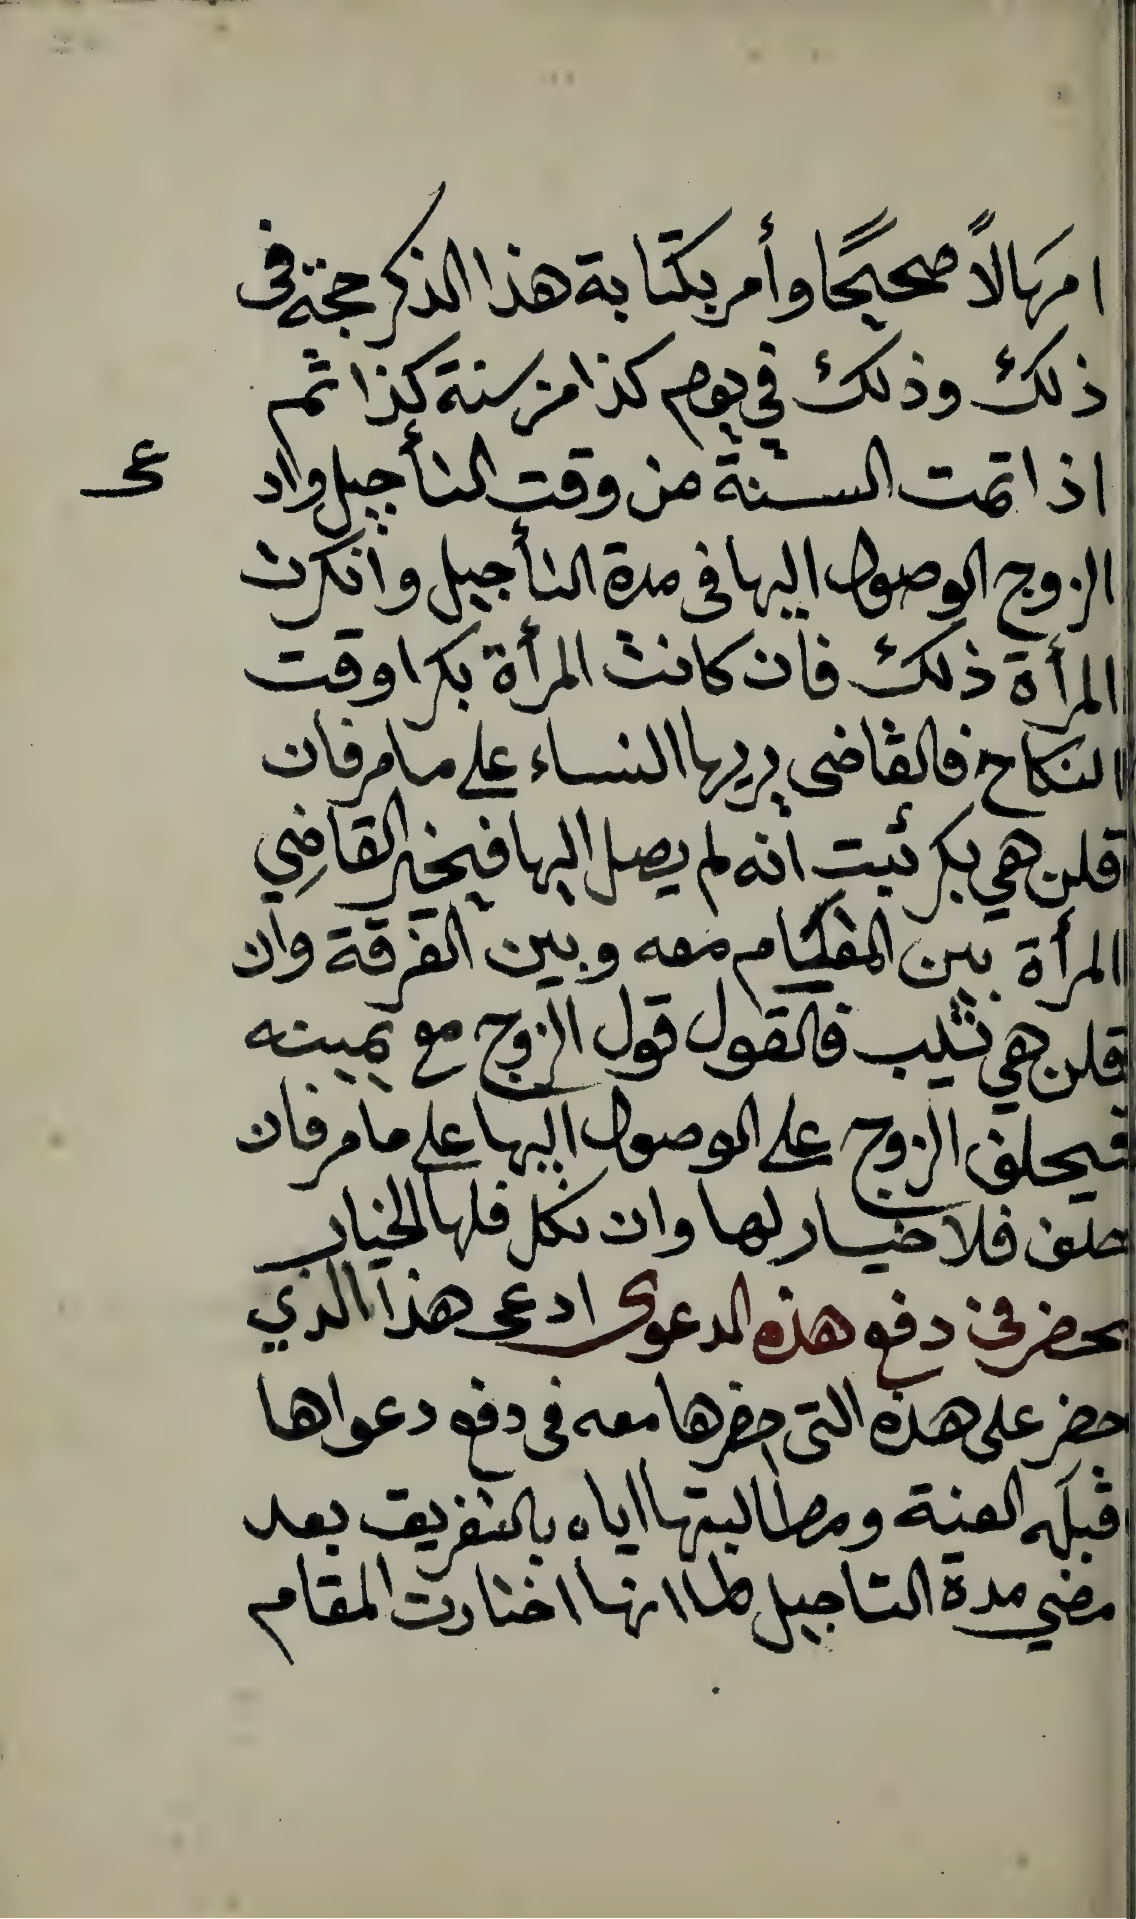 امهالاً صحيحًا وأمر بكتابة هذا الذكر حجة فى
ذلك وذلك في يوم كذا من سنة كذا ثم
اذا تمت السنة من وقت التأجيل واد
عى
الزوج الوصول اليها فى مدة التأجيل وانكرت
المرأة ذلك فان كانت المرأة بكرا وقت
النكاح فالقاضى يريها النساء على ما مر فان
قلن هي بكر ثبت أنه لم يصل اليها فيخير القاضِي
المرأة بين المقام معه وبين الفرقة وان
قلن هي ثيب فالقول قول الزوج مع يمينه
فيحلف الزوج على الوصول اليها على ما مر فان
حلف فلا خيار لها وان نكل فلها الخيار
محضر فى دفع هذه الدعوى ادعى هذا الذي
حضر على هذه التى احضرها معه فى دفع دعواها
قبله العنة ومطالبتها اياه بالتفريق بعد
مضي مدة التاجيل لما انها اختارت المقام